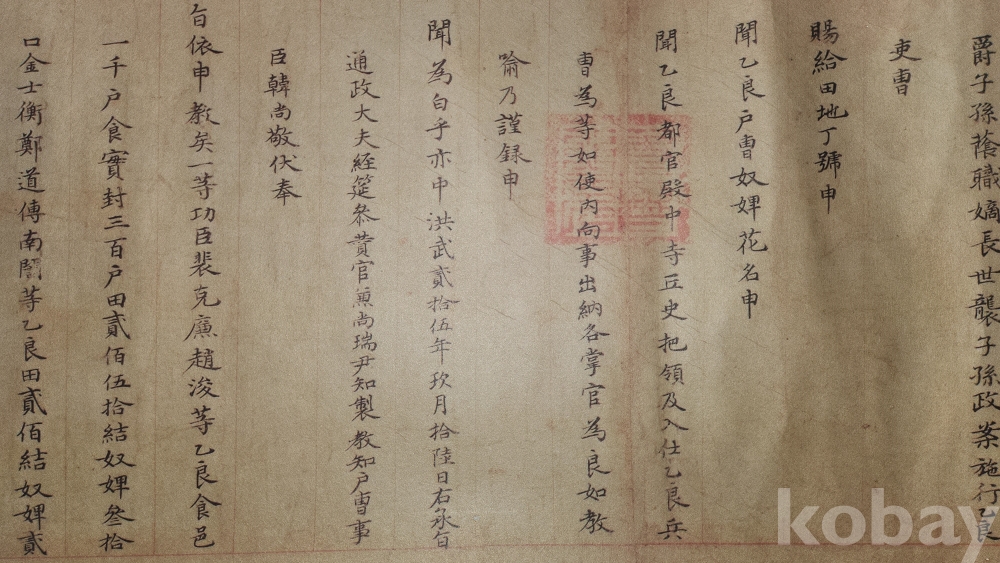 爵子孫蔭職嫡長世襲子孫政案施行乙良
吏曹
賜給田地丁號申
聞乙良戶曹奴婢花名申
聞乙良都官殿中寺丘史把領及入仕乙良兵
曹為等如使內向事出納各掌官為良如教
喩乃謹録申
聞為白乎亦中洪武貳拾伍年玖月拾陸日右承旨
通政大夫經筵叅賛官兼尚瑞尹知製教知戶曹事
臣韓尚敬伏奉
旨依申教矣一等功臣裴克廉趙浚等乙良食邑
一千戶食實封三百戶田貳佰伍拾結奴婢叄拾
口金士衡鄭道傳南誾等乙良田貳佰結奴婢貳
kobay